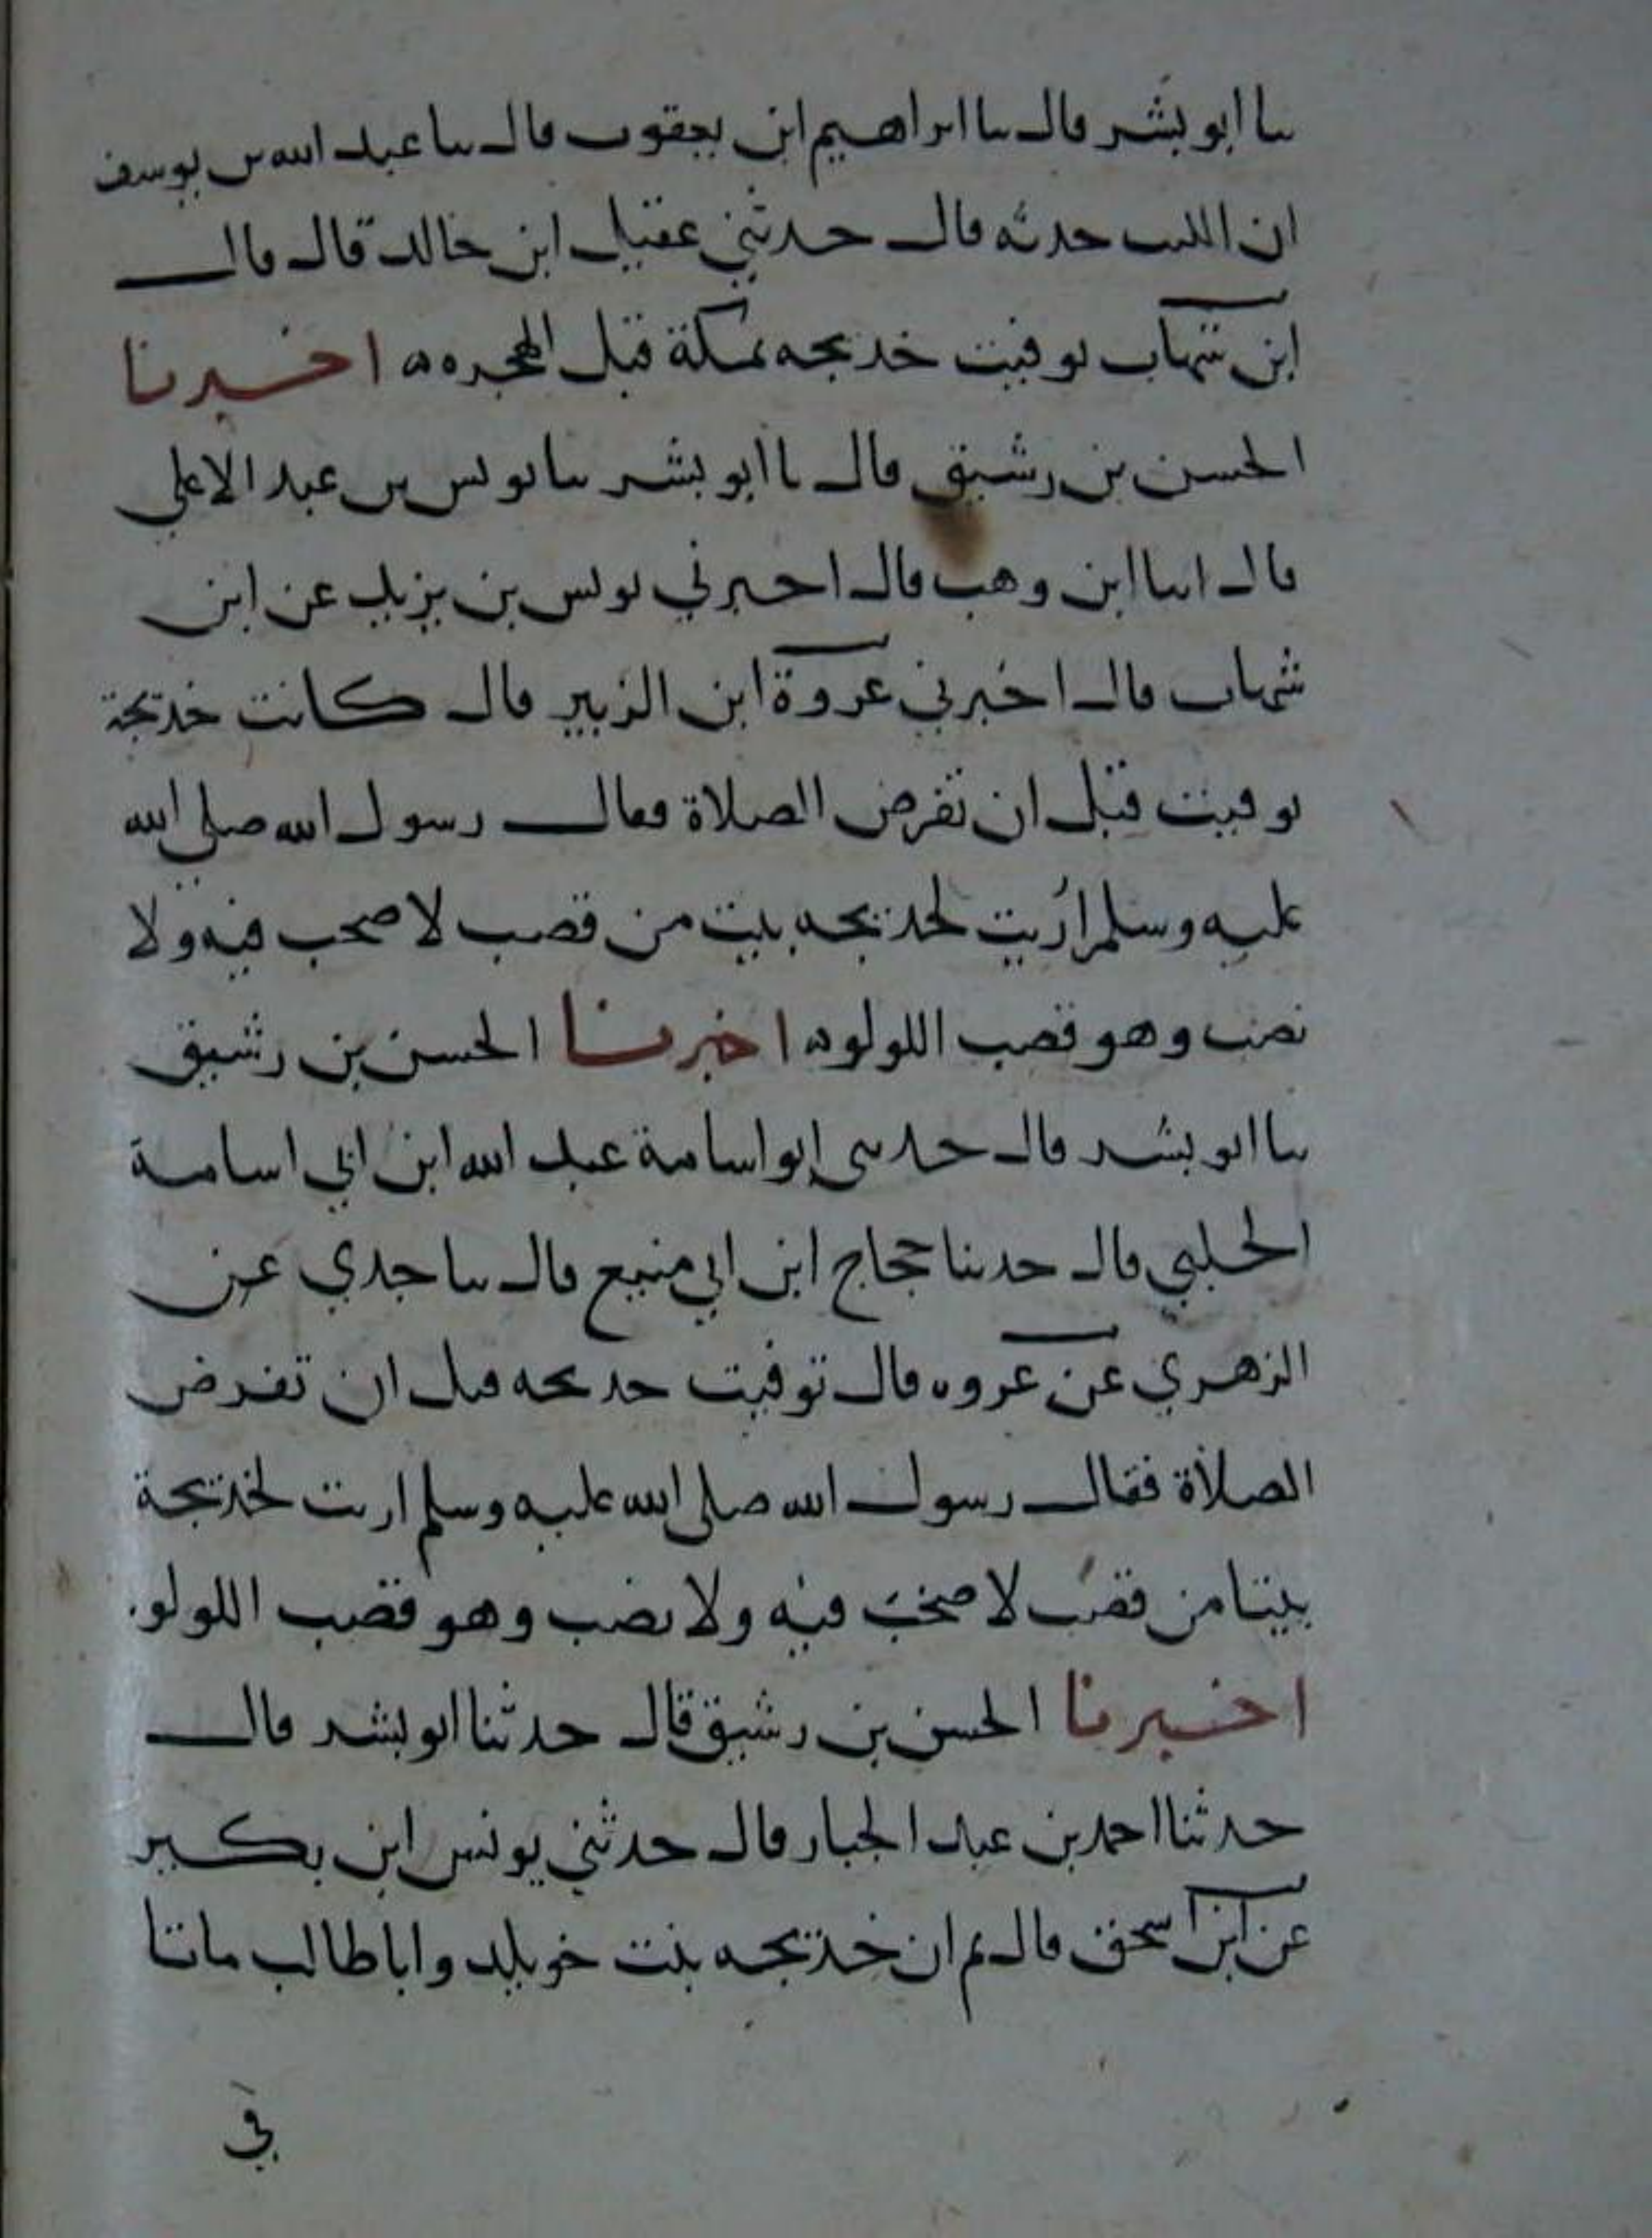 سا ابو بشر قال سا ابراهيم ابن يعقوب قال سا عبد الله بن يوسف
ان الليث حدثه قال حدثني عقيل ابن خالد قال قال
ابن شهاب توفيت خديجه بمكة قبل الهجره ه اخبرنا
الحسن بن رشيق قال نا ابو بشر سا يونس بن عبد الاعلي
قال انبا ابن وهب قال اخبرني يونس بن يزيد عن ابن
شهاب قال اخبرني عروة ابن الزبير قال كانت خديجة
توفيت قبل ان تفرض الصلاة فقال رسول الله صلي الله
عليه وسلم اُريت لخديجه بيت من قصب لا صخب فيه ولا
نصب وهو قصب اللولو ه اخبرنا الحسن بن رشيق
سا ابو بشر قال حدثني ابو اسامة عبد الله ابن ابي اسامة
الحلبي قال حدثنا حجاج ابن ابي منيع قال سا جدي عن
الزهري عن عروه قال توفيت خديجه قبل ان تفرض
الصلاة فقال رسول الله صلي الله عليه وسلم اريت لخديجة
بيتا من قصب لا صخب فيه ولا نصب وهو قصب اللولو.
اخبرنا الحسن بن رشيق قال حدثنا ابو بشر قال
حدثنا احمد بن عبد الجبار قال حدثني يونس ابن بكير
عن ابن اسحق قال ثم ان خديجه بنت خويلد وابا طالب ماتا
في